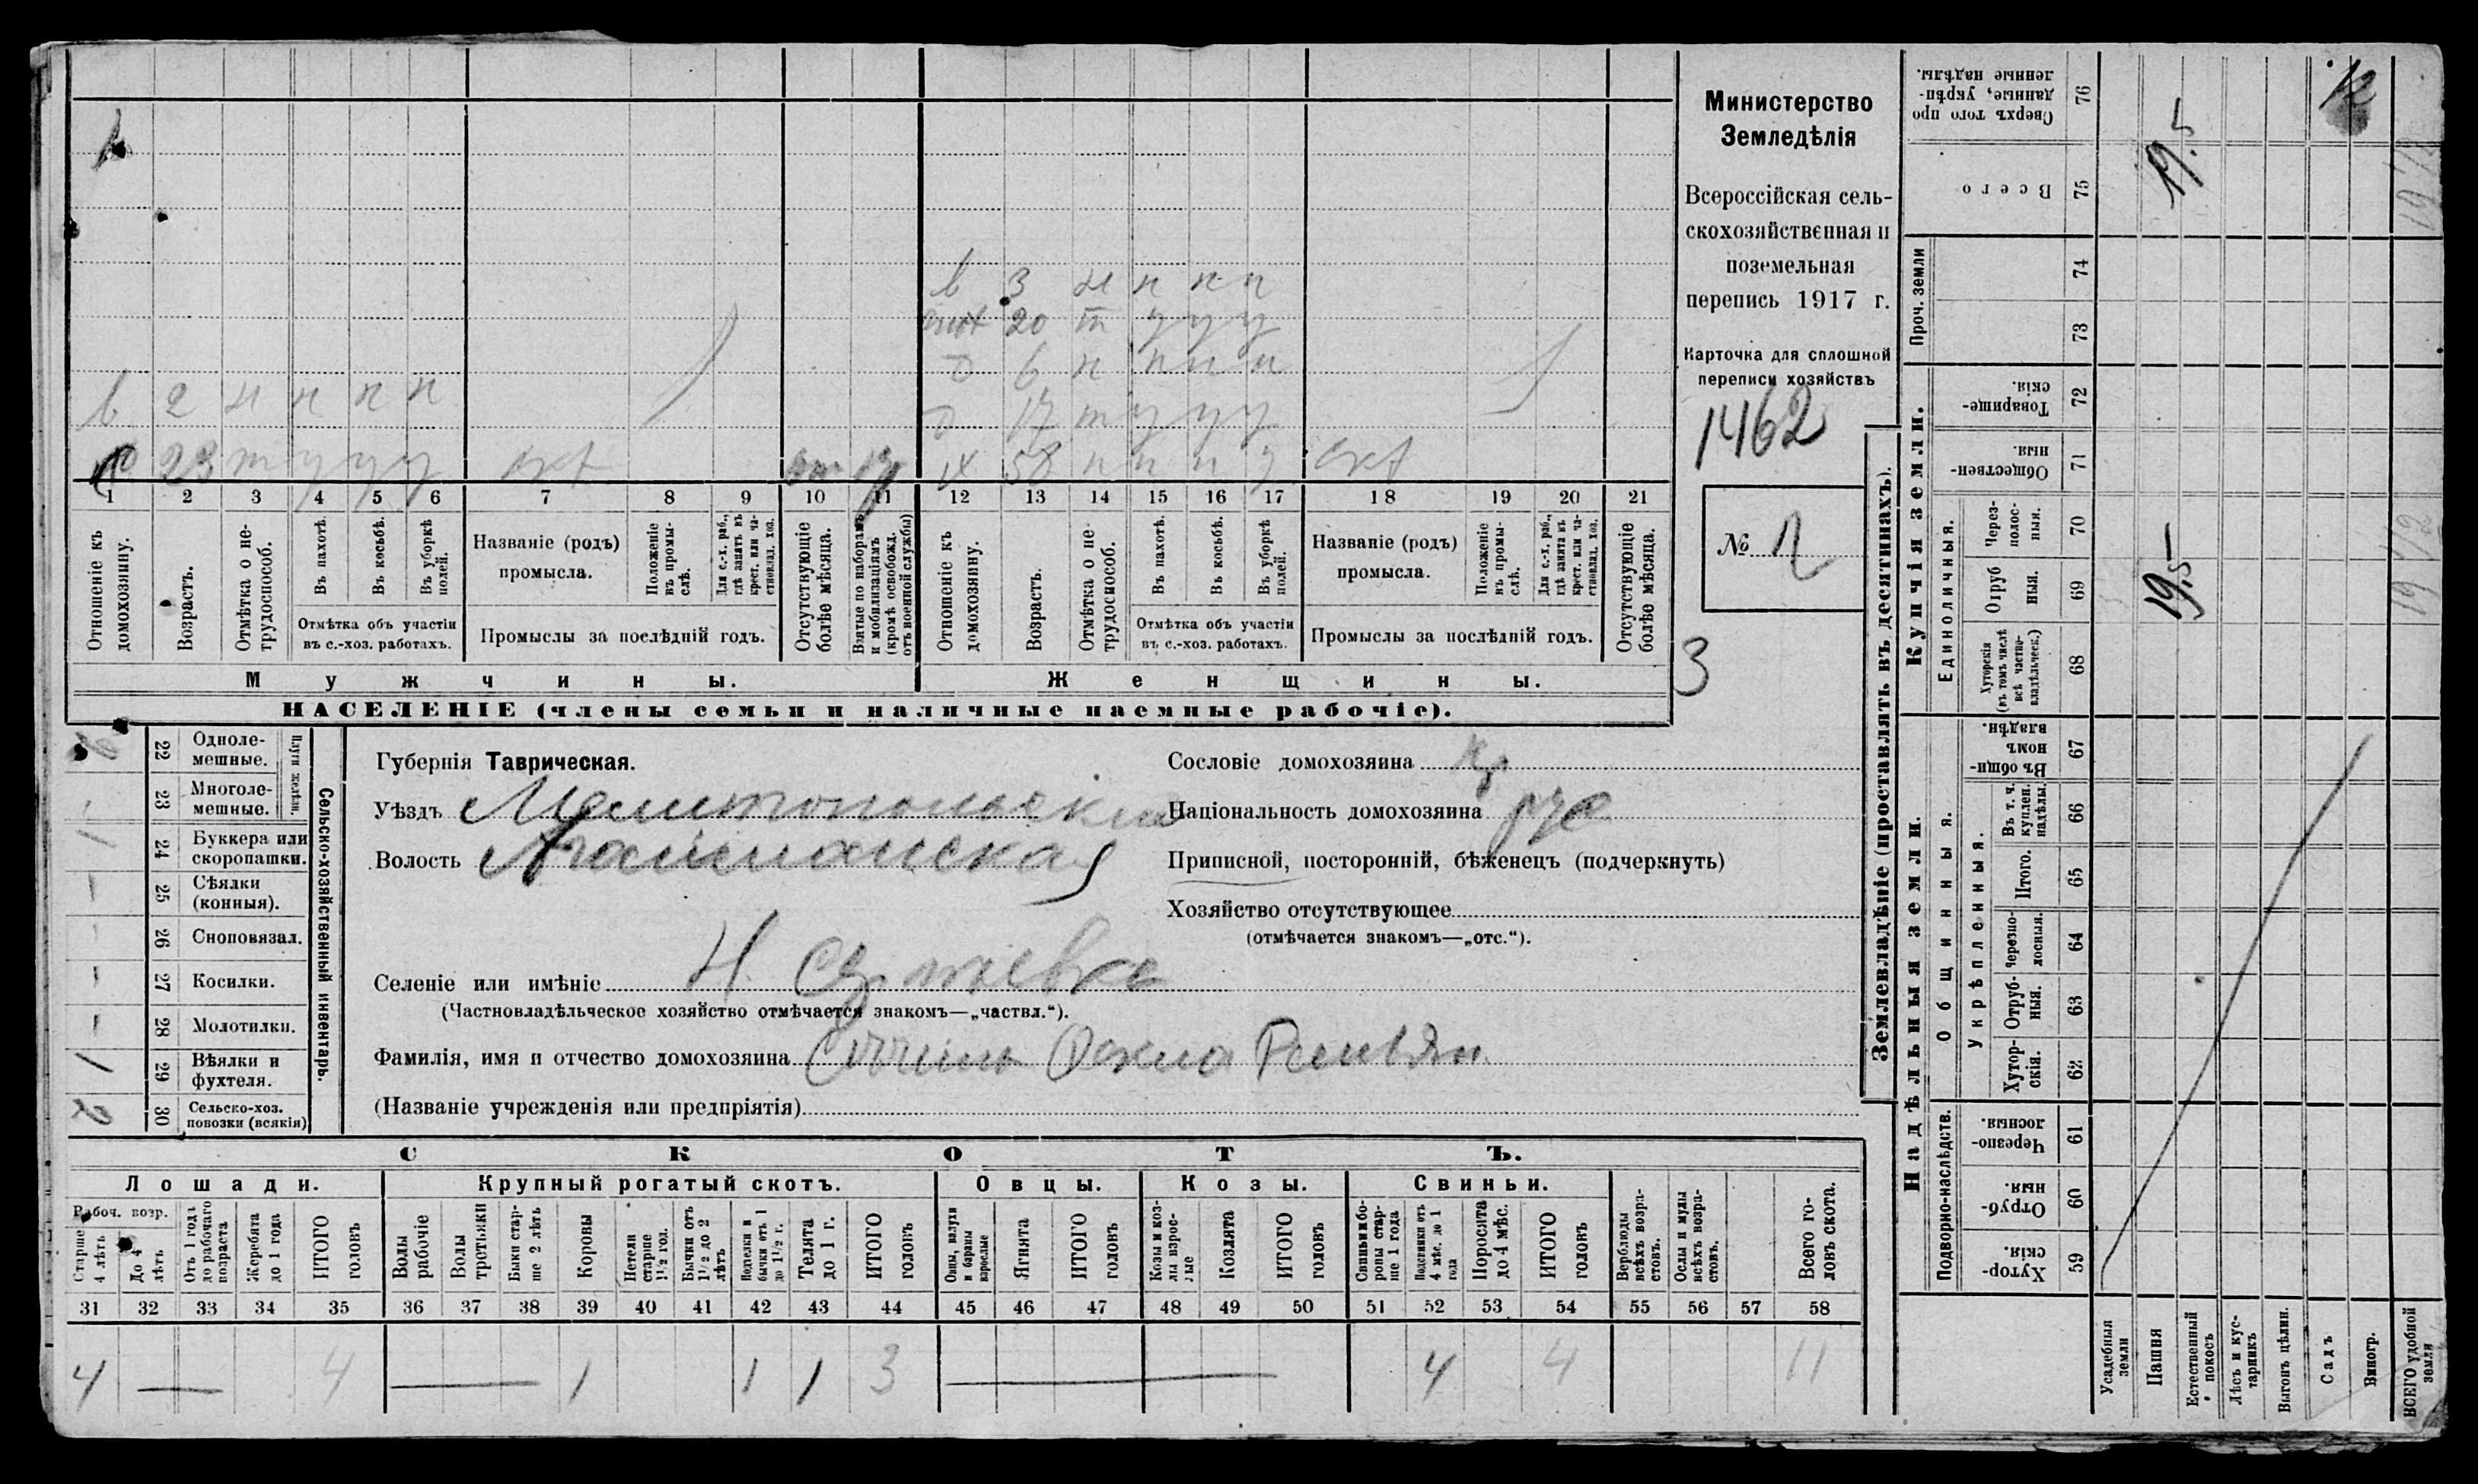 Министерство
Земледѣлія
Всероссійская сель-
скохозяйственная и
поземельная
перепись 1917 г.
Карточка для сплошной
переписи хозяйствъ
1462
№
3
в 3 н н н н
20 т у у у
д 6 н н н н
д 17 т у у у
в 2 н н н н
23 т у у у
58 н н н у
1 2 3 4 5 6 7 8 9 10 11 12 13 14 15 16 17 18 19 20 21
Отношеніе къ домохозяину.
Возрастъ.
Отмѣтка о не-трудоспособ.
Въ пахотѣ.
Въ косьбѣ.
Въ уборкѣ полей.
Отмѣтка объ участіи
въ с.-хоз. работахъ.
Названіе (родъ)
промысла.
Положеніе въ промы-слѣ.
Для с.-х. раб., гдѣ занятъ въ крест. или ча-стновлад. хоз.
Промыслы за послѣдній годъ.
Отсутствующіе болѣе мѣсяца.
Взятые по наборамъ и мобилизаціямъ (кромѣ освобожд. отъ военной службы)
Отношеніе къ домохозяину.
Возрастъ.
Отмѣтка о не-трудоспособ.
Въ пахотѣ.
Въ косьбѣ.
Въ уборкѣ полей.
Отмѣтка объ участіи
въ с.-хоз. работахъ.
Названіе (родъ)
промысла.
Положеніе въ промы-слѣ.
Для с.-х. раб., гдѣ занята въ крест. или ча-стновлад. хоз.
Промыслы за послѣдній годъ.
Отсутствующіе болѣе мѣсяца.
Мужчины.
Женщины.
НАСЕЛЕНІЕ (члены семьи и наличные наемные рабочіе).
Сельско-хозяйственный инвентарь.
Плуги желѣзн.
22 Одноле-мешные.
23 Многоле-мешные.
24 Буккера или скоропашки.
25 Сѣялки (конныя).
26 Сноповязал.
27 Косилки.
28 Молотилки.
1 29 Вѣялки и фухтеля.
2 30 Сельско-хоз. повозки (всякія)
Губернія Таврическая.
Уѣздъ Мелитопольский
Волость
Селеніе или имѣніе Н.
(Частновладѣльческое хозяйство отмѣчается знакомъ—„частвл.“).
Фамилія, имя и отчество домохозяина
(Названіе учрежденія или предпріятія)
Сословіе домохозяина кр
Національность домохозяина рус
Приписной, посторонній, бѣженецъ (подчеркнуть)
Хозяйство отсутствующее
(отмѣчается знакомъ—„отс.“).
СКОТЪ.
Лошади.
Крупный рогатый скотъ.
Овцы.
Козы.
Свиньи.
Рабоч. возр.
Старше 4 лѣтъ
До 4 лѣтъ
Отъ 1 годъ до рабочаго возраста
Жеребята до 1 года
ИТОГО головъ
Волы рабочіе
Волы третьяки
Быки стар-ше 2 лѣтъ
Коровы
Нетели старше 1½ год.
Бычки отъ 1½ до 2 лѣтъ
Подтелки и бычки отъ 1 до 1½ г.
Телята до 1 г.
ИТОГО головъ
Овцы, валухи и бараны взрослые
Ягнята
ИТОГО головъ
Козы и коз-лы взрос-лые
Козлята
ИТОГО головъ
Свиньи и бо-ровы стар-ше 1 года
Подсвинки отъ 4 мѣс. до 1 года
Поросята до 4 мѣс.
ИТОГО головъ
Верблюды всѣхъ возра-стовъ.
Ослы и мулы всѣхъ возра-стовъ.
Всего го-ловъ скота.
31 32 33 34 35 36 37 38 39 40 41 42 43 44 45 46 47 48 49 50 51 52 53 54 55 56 57 58
4 4 1 1 1 3 4 4 11
Землевладѣніе (проставлять въ десятинахъ).
Купчія земли.
Надѣльныя земли.
Сверхъ того про данные, укрѣп-ленные надѣлы. 76
Всего 75
Проч. земли
74
73
Товарище-скія. 72
Обществен-ныя 71
Единоличныя.
Через-полос-ныя. 70
Отруб ныя. 69
Хуторскія (въ томъ числѣ всѣ частно-владѣльческ.) 68
Общинныя.
Въ общи-номъ владѣн. 67
Укрѣпленныя.
Въ т. ч. куплен. надѣлы. 66
Итого. 65
Черезпо-лосныя. 64
Отруб-ныя. 63
Хутор-скія. 62
Подворно-наслѣдств.
Черезпо-лосныя. 61
Отруб-ныя 60
Хутор-скія. 59
Усадебныя земли
Пашня
Естественный покосъ
Лѣсъ и кус-тарникъ
Выгонъ цѣлин.
Садъ
Виногр.
ВСЕГО удобной земли
19.5
19,5